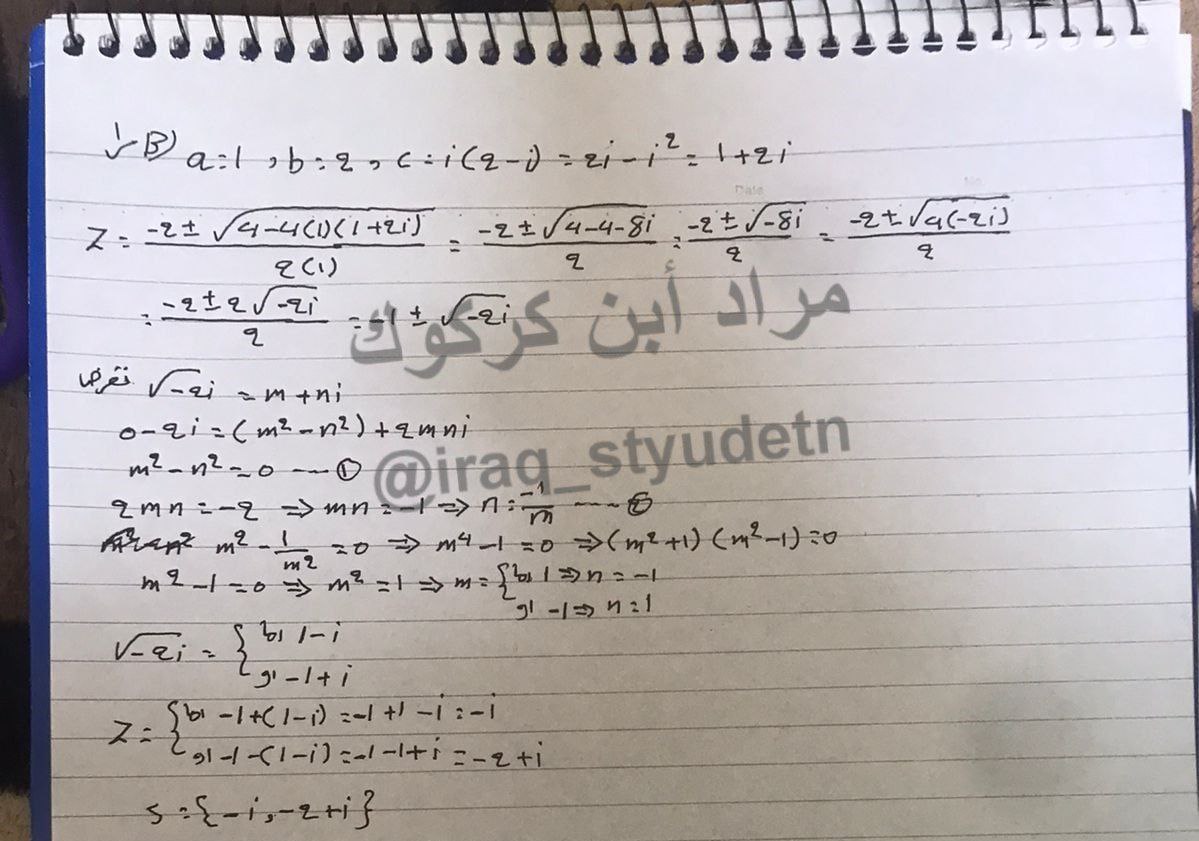 س1 B) a=1 , b=2 , c=i(2-i) = 2i-i² = 1+2i
Date No
Z = (-2 ± √(4-4(1)(1+2i)))/(2(1)) = (-2 ± √(4-4-8i))/2 = (-2 ± √(-8i))/2 = (-2 ± √(4(-2i)))/2
= (-2 ± 2√(-2i))/2 = -1 ± √(-2i)
مراد أبن كركوك
نفرض √(-2i) = m+ni
0-2i = (m²-n²)+2mni
m²-n²=0 ---- ①
@iraq_styudetn
2mn=-2 ⇒ mn=-1 ⇒ n=-1/m ---- ②
m² - 1/m² = 0 ⇒ m⁴-1=0 ⇒ (m²+1)(m²-1)=0
m²-1=0 ⇒ m²=1 ⇒ m= { اما 1 ⇒ n=-1
او -1 ⇒ n=1
√(-2i) = { اما 1-i
او -1+i
Z = { اما -1+(1-i) = -1+1-i = -i
او -1-(1-i) = -1-1+i = -2+i
S = {-i, -2+i}